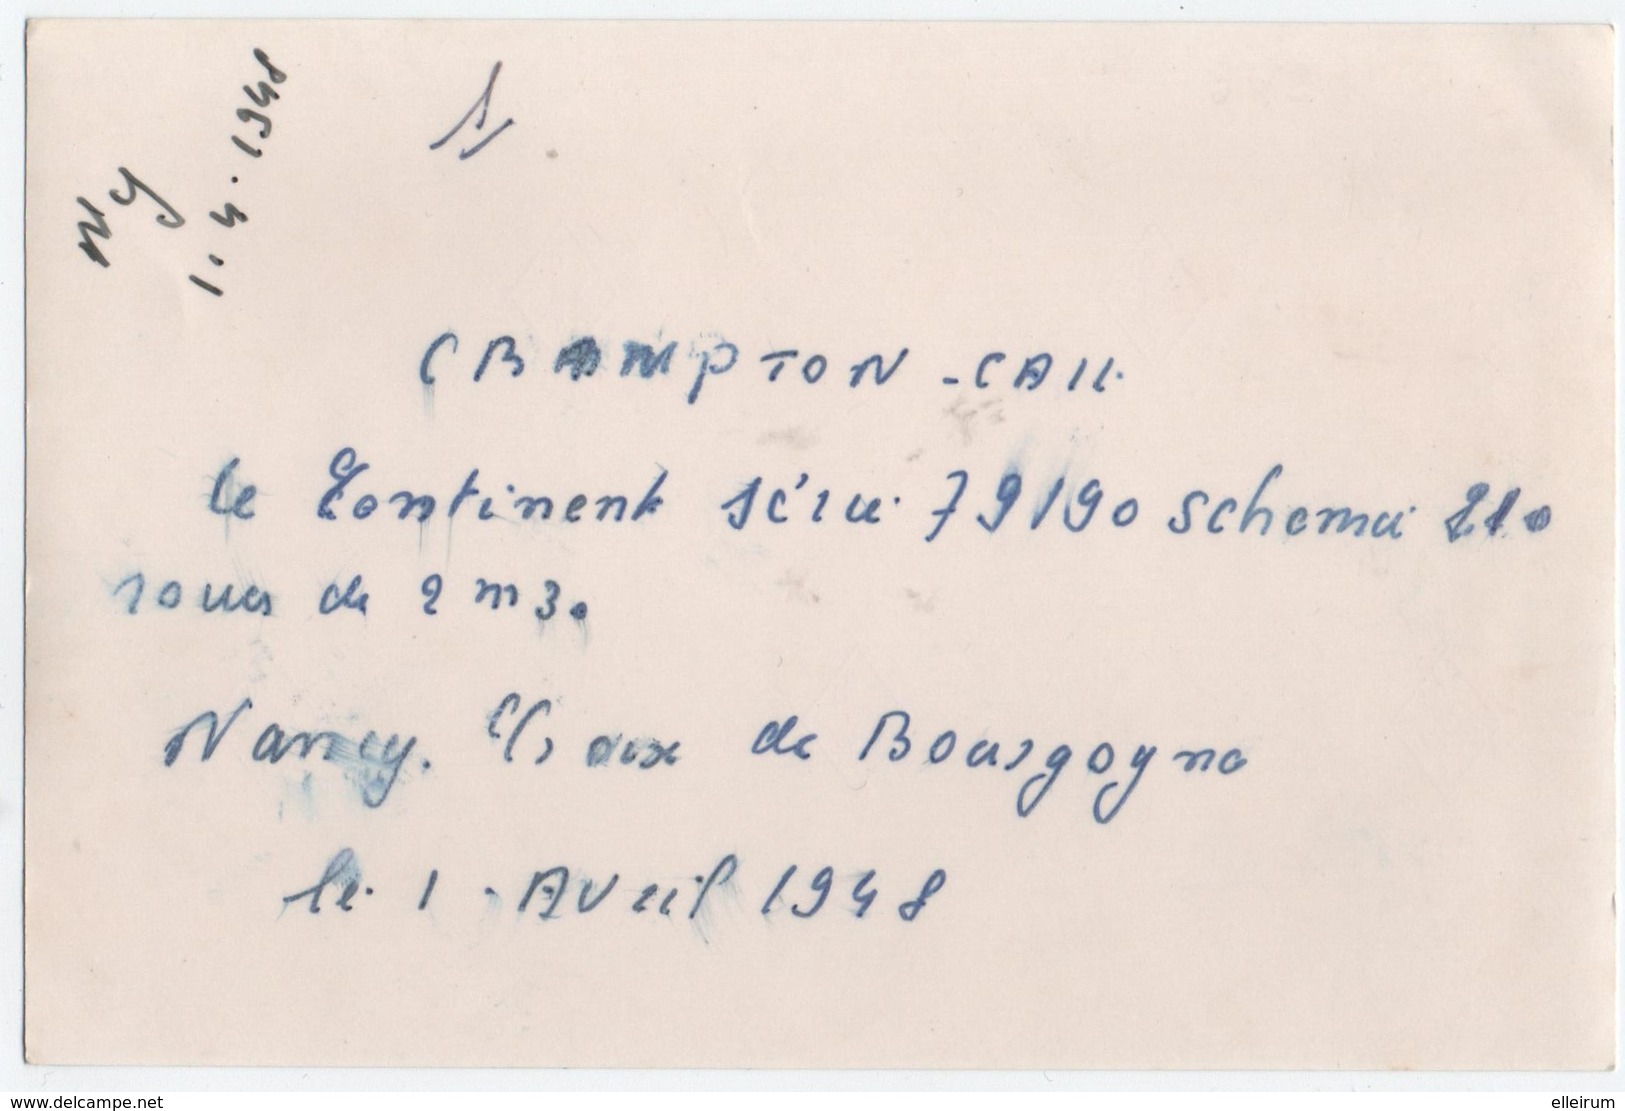 Ny
1.4.1948
CRAMPTON - CAIL
le Continent série 79/90 schema 210
roues de 2 m 30
Nancy. Croix de Bourgogne
le 1. Avril 1948
www.delcampe.net
elleirum